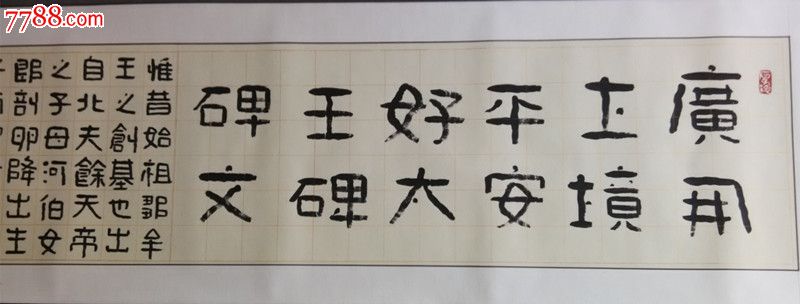 7788.com
中国收藏热线
廣開
土境
平安
好太
王碑
碑文
惟昔始祖鄒牟
王之創基也出
自北夫餘天帝
之子母河伯女
郎剖卵降出生